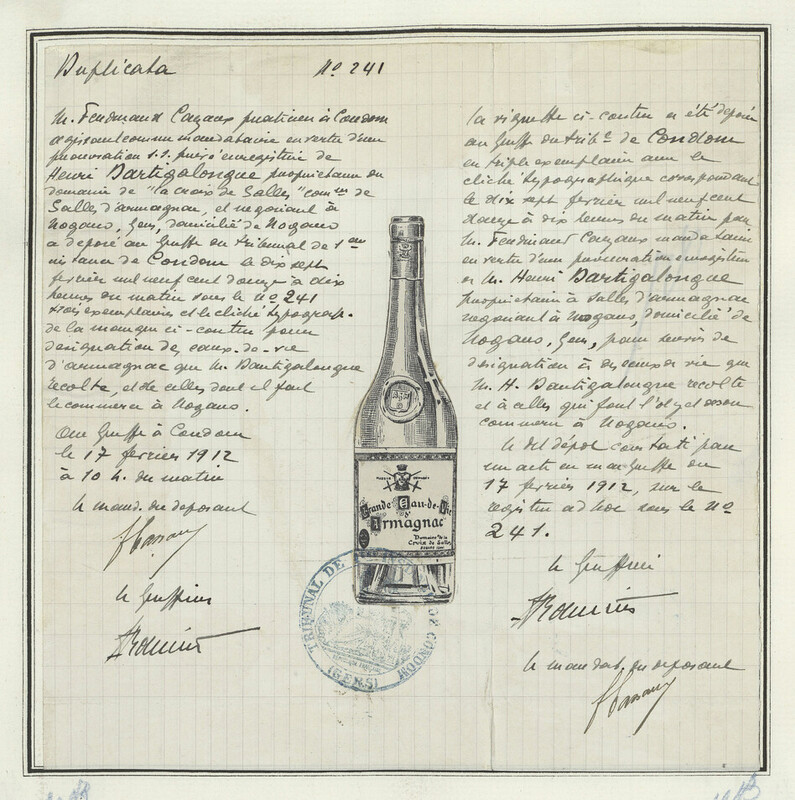 Duplicata Nº 241
M. Ferdinand Cazaux praticien à Condom
agissant comme mandataire en vertu d'une
procuration s.s. privé enregistrée de
Henri Dartigalongue propriétaire du
domaine de "la croix de Salles" comne de
Salles d'armagnac, et négociant à
Nogaro, Gers, domicilié de Nogaro
a déposé au Greffe du tribunal de 1ere
instance de Condom le dix sept
février mil neuf cent douze à dix
heures du matin sous le Nº 241
trois exemplaires et le cliché typograph.
de la marque ci-contre pour
désignation des eaux-de-vie
d'armagnac que M. Dartigalongue
récolte, et de celles dont il fait
le commerce à Nogaro.
Au Greffe à Condom
le 17 février 1912
à 10 h. du matin
le mand. du déposant
le Greffier
La vignette ci-contre a été déposée
au Greffe du trib. de Condom
en triple exemplaire avec le
cliché typographique correspondant
le dix sept février mil neuf cent
douze à dix heures du matin par
M. Ferdinand Cazaux mandataire
en vertu d'une procuration enregistrée
de M. Henri Dartigalongue
propriétaire à Salles d'armagnac
négociant à Nogaro, domicilié de
Nogaro, Gers, pour servir de
désignation à des eaux de vie que
M. H. Dartigalongue récolte
et à celles qui font l'objet de son
commerce à Nogaro.
le dit dépôt constaté par
un acte en mon Greffe du
17 février 1912, sur le
registre ad hoc sous le Nº
241.
le Greffier
le mandat. du déposant
Grande Eau-de-Vie
d'Armagnac
Domaine de la
Croix de Salles
TRIBUNAL DE CONDOM
(GERS)